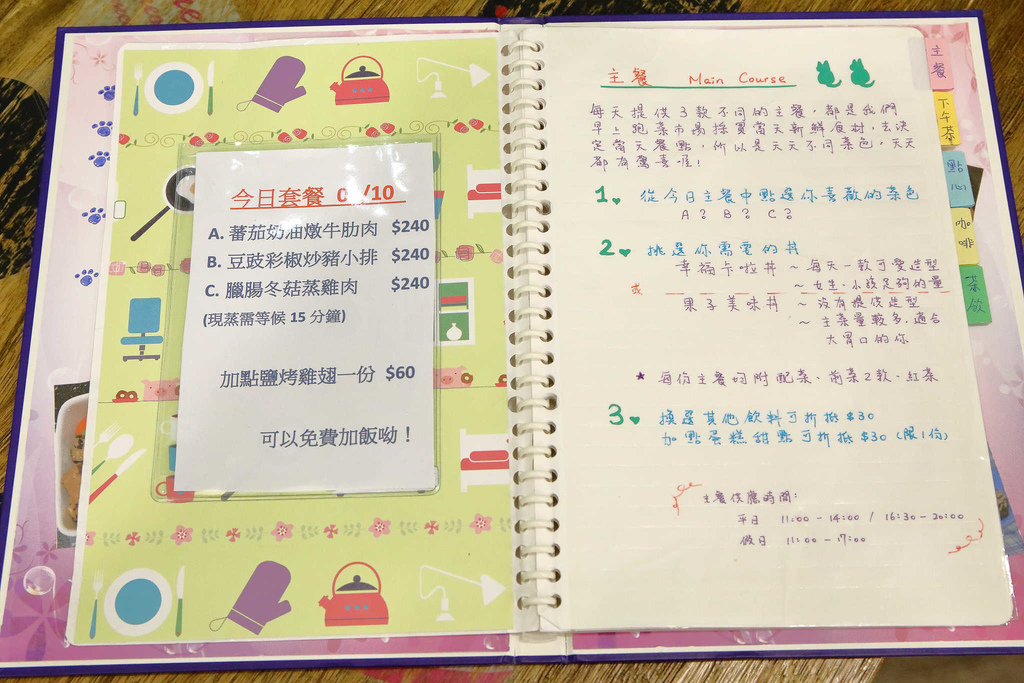 今日套餐 0 /10
A. 蕃茄奶油燉牛肋肉 $240
B. 豆豉彩椒炒豬小排 $240
C. 臘腸冬菇蒸雞肉 $240
(現蒸需等候 15 分鐘)
加點鹽烤雞翅一份 $60
可以免費加飯呦！
主餐 Main Course
每天提供3款不同的主餐，都是我們
早上跑菜市場採買當天新鮮食材，去決
定當天餐點，所以是天天不同菜色，天天
都有驚喜喔！
1 從今日主餐中點選你喜歡的菜色
A? B? C?
2 挑選你需要的丼
幸福卡啦丼 ~ 每天一款可愛造型
~ 女生、小孩足夠的量
或
果子美味丼 ~ 沒有提供造型
~ 主菜量較多，適合
大胃口的你
★ 每份主餐均附配菜、前菜2款、紅茶
3 換選其他飲料可折抵$30
加點蛋糕甜點可折抵$30 (限1份)
主餐供應時間：
平日 11:00 - 14:00 / 16:30 - 20:00
假日 11:00 - 17:00
主餐
下午茶
點心
咖啡
茶飲